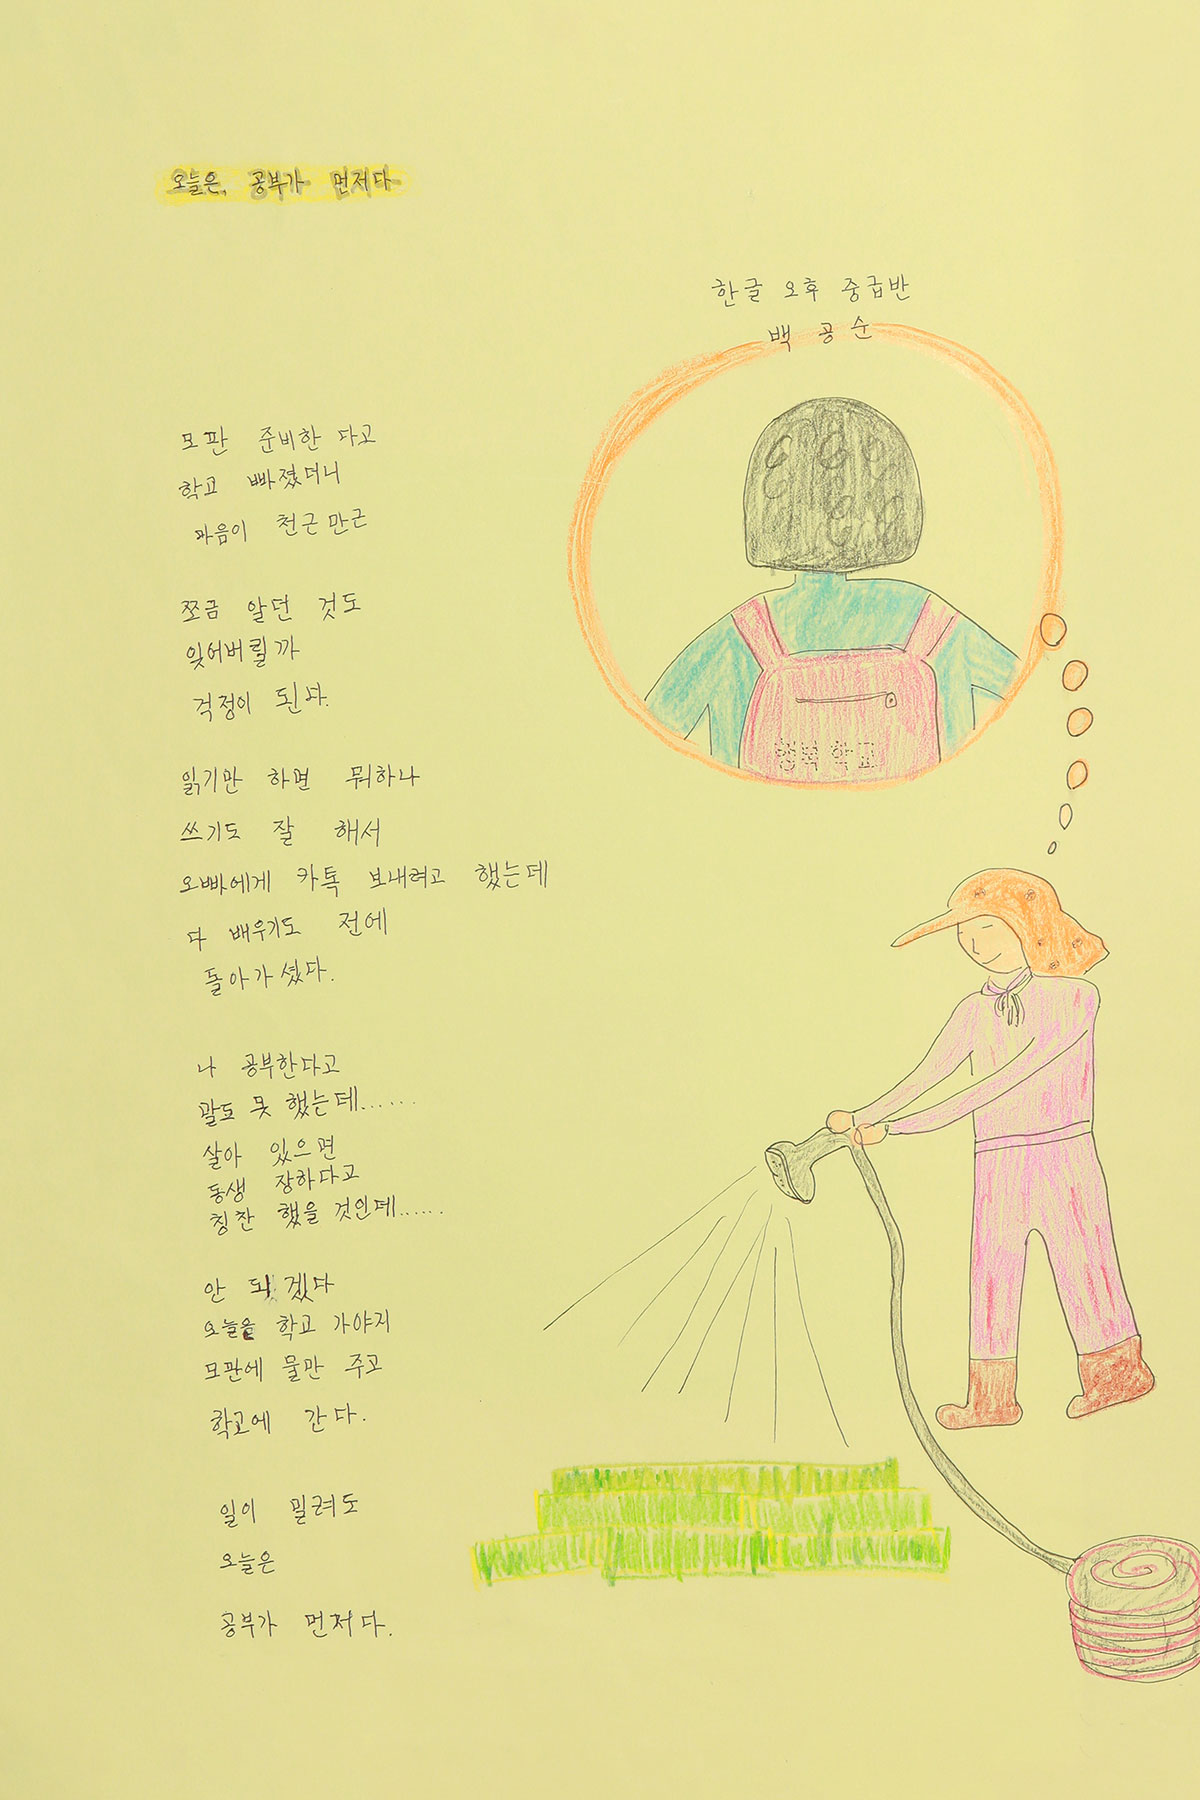 오늘은, 공부가 먼저다
한글 오후 중급반
백 공 순
모판 준비한 다고
학교 빠졌더니
마음이 천근만근
쪼끔 알던 것도
잊어버릴까
걱정이 된다.
읽기만 하면 뭐하나
쓰기도 잘 해서
오빠에게 카톡 보내려고 했는데
다 배우기도 전에
돌아가셨다.
나 공부한다고
말도 못 했는데......
살아 있으면
동생 장하다고
칭찬 했을 것인데......
안 되겠다
오늘은 학교 가야지
모판에 물만 주고
학교에 간다.
일이 밀려도
오늘은
공부가 먼저다.
행복 학교